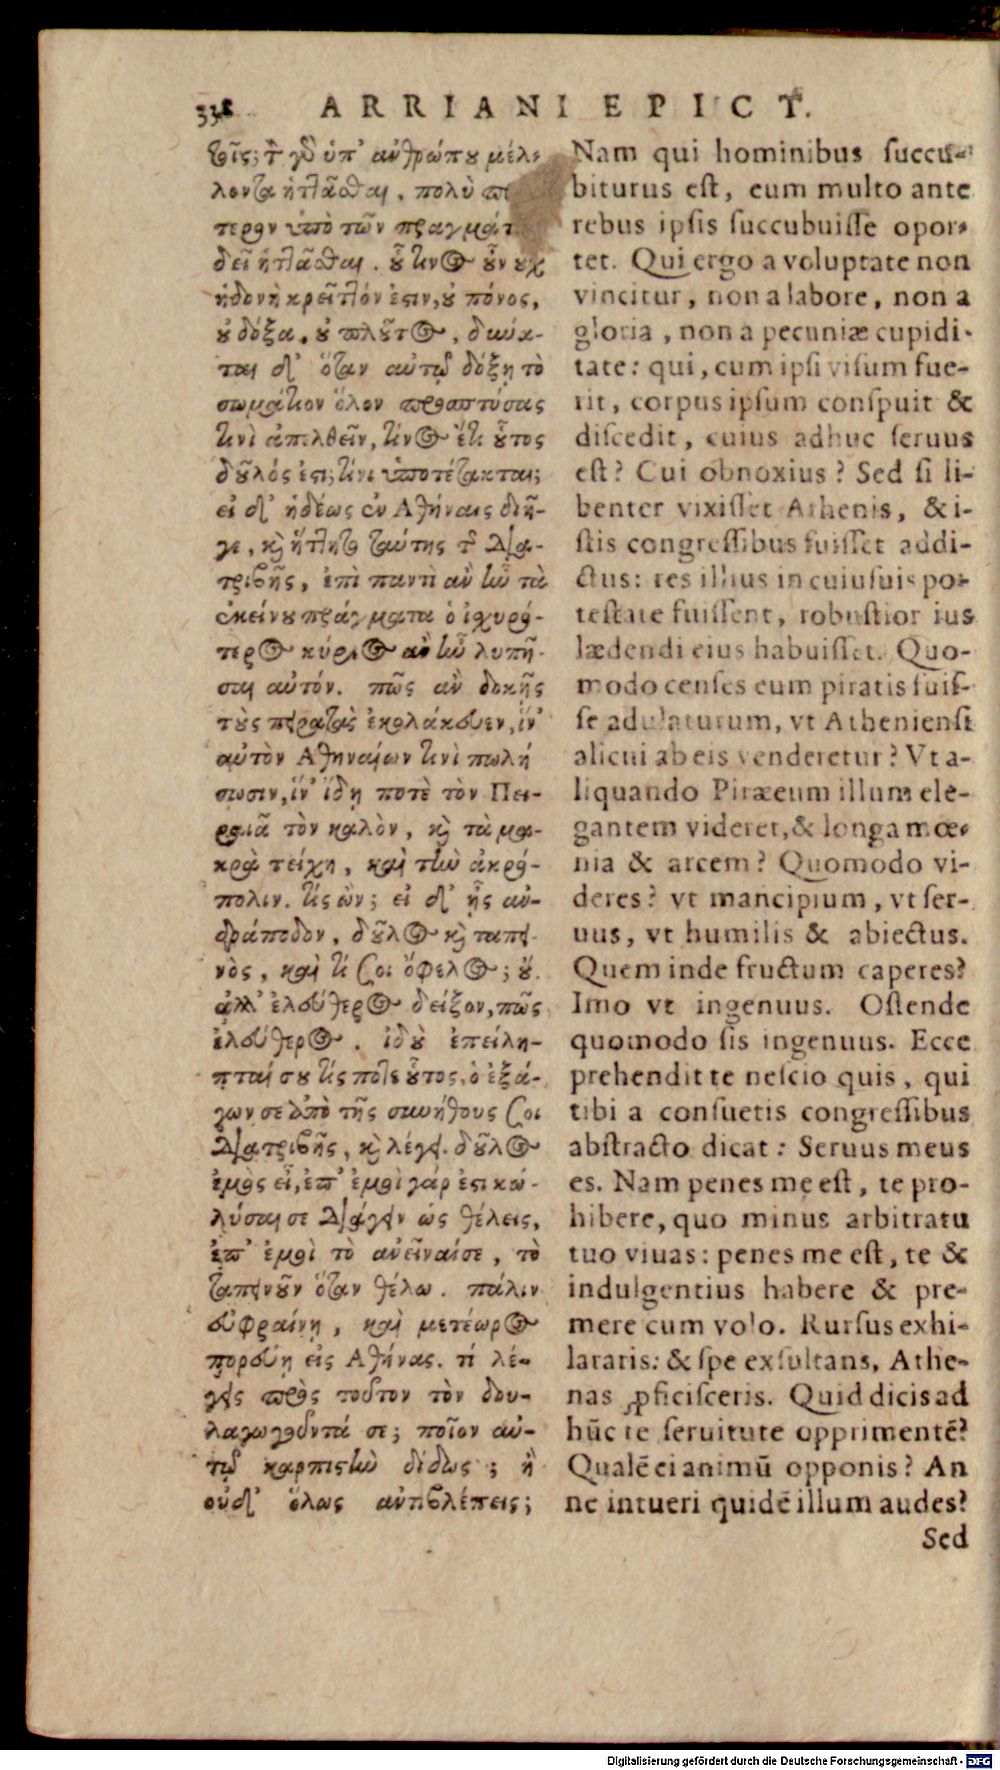 338 ARRIANI EPICT.
τοῖς; τ̃ γδ ὑπ' ἀνθρώπου μέλ-
λοντα ἡττᾶσθαι, πολὺ
τερον ὑπὸ τῶν πραγμάτ
δεῖ ἡττᾶσθαι. οὗ τινος οὖν οὐχ
ἡδονὴ κρεῖττόν ἐστιν, οὐ πόνος,
οὐ δόξα, οὐ πλοῦτος, δύνα-
ται δ' ὅταν αὐτῷ δόξῃ τὸ
σωμάτιον ὅλον προσπτύσας
τινὶ ἀπελθεῖν, τίνος ἔτι οὗτος
δοῦλός ἐστι; τίνι ὑποτέτακται;
εἰ δ' ἡδέως ἐν Ἀθήναις διῆ-
γε, καὶ ἥττητο ταύτης τ̃ δια-
τριβῆς, ἐπὶ παντὶ ἂν ἦν τὰ
ἐκείνου πράγματα ὁ ἰσχυρό-
τερος κύριος ἂν ἦν λυπῆ-
σαι αὐτόν. πῶς ἂν δοκῇς
τοὺς πειρατὰς ἐκολάκευεν, ἵν'
αὐτὸν Ἀθηναίων τινὶ πωλή
σωσιν, ἵν' ἴδῃ ποτὲ τὸν Πει-
ραιᾶ τὸν καλὸν, καὶ τὰ μα-
κρὰ τείχη, καὶ τὴν ἀκρό-
πολιν. τίς ὢν; εἰ δ' ᾖς ἀν-
δράποδον, δοῦλος καὶ ταπει-
νὸς, καὶ τί σοι ὄφελος; οὔ.
ἀλλ' ἐλεύθερος δεῖξον, πῶς
ἐλεύθερος. ἰδοὺ ἐπείλη-
πταί σου τίς ποτε οὗτος, ὁ ἐξά-
γων σε ἀπὸ τῆς συνήθους σοι
διατριβῆς, καὶ λέγει. δοῦλος
ἐμὸς εἶ, ἐπ' ἐμοὶ γάρ ἐστι κω-
λῦσαι σε διάγειν ὡς θέλεις,
ἐπ' ἐμοὶ τὸ ἀνεῖναί σε, τὸ
ταπεινοῦν ὅταν θέλω. πάλιν
εὐφραίνῃ, καὶ μετέωρος
πορεύῃ εἰς Ἀθήνας. τί λέ-
γεις πρὸς τοῦτον τὸν δου-
λαγωγοῦντά σε; ποῖον αὐ-
τῷ καρπιστὴν δίδως; ἢ
οὐδ' ὅλως ἀντιβλέπεις;
Nam qui hominibus succu-
biturus est, eum multo ante
rebus ipsis succubuisse opor-
tet. Qui ergo a voluptate non
vincitur, non a labore, non a
gloria, non a pecuniæ cupidi-
tate: qui, cum ipsi visum fue-
rit, corpus ipsum conspuit &
discedit, cuius adhuc seruus
est? Cui obnoxius? Sed si li-
benter vixisset Athenis, & i-
stis congressibus fuisset addi-
ctus: res illius in cuiusuis po-
testate fuissent, robustior ius
lædendi eius habuisset. Quo-
modo censes eum piratis fuis-
se adulaturum, vt Atheniensi
alicui ab eis venderetur? Vt a-
liquando Piræeum illum ele-
gantem videret, & longa mœ-
nia & arcem? Quomodo vi-
deres? vt mancipium, vt ser-
uus, vt humilis & abiectus.
Quem inde fructum caperes?
Imo vt ingenuus. Ostende
quomodo sis ingenuus. Ecce
prehendit te nescio quis, qui
tibi a consuetis congressibus
abstracto dicat: Seruus meus
es. Nam penes me est, te pro-
hibere, quo minus arbitratu
tuo viuas: penes me est, te &
indulgentius habere & pre-
mere cum volo. Rursus exhi-
lararis: & spe exsultans, Athe-
nas ꝓficisceris. Quid dicis ad
hũc te seruitute opprimentẽ?
Qualẽ ei animũ opponis? An
ne intueri quidẽ illum audes?
Sed
Digitalisierung gefördert durch die Deutsche Forschungsgemeinschaft - DFG